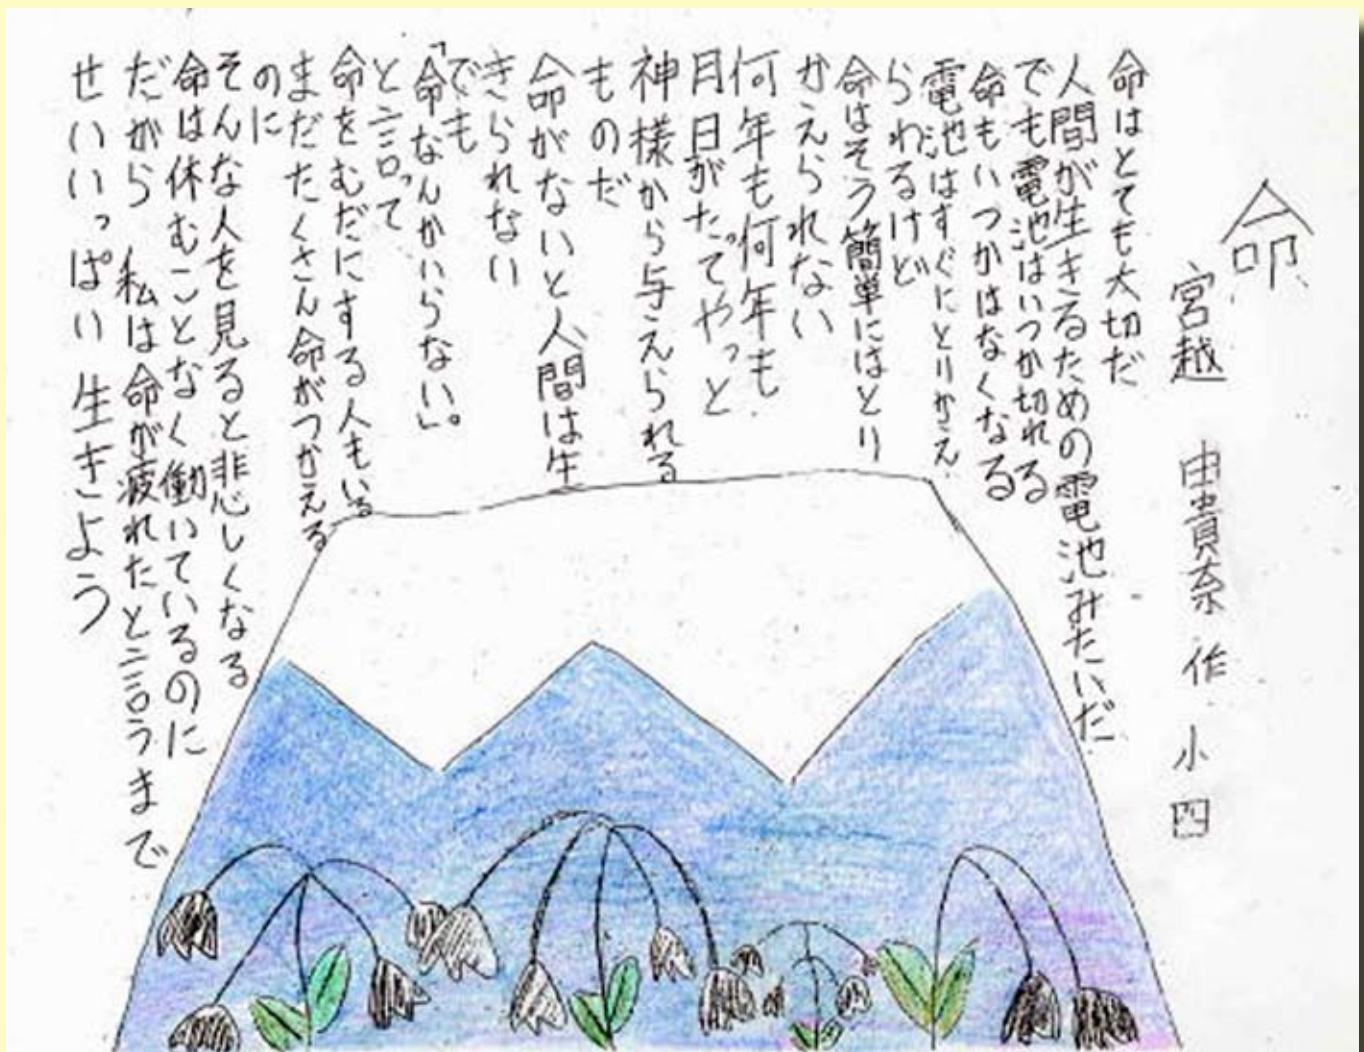 命
宮越 由貴奈 作 小四
命はとても大切だ
人間が生きるための電池みたいだ
でも電池はいつか切れる
命もいつかはなくなる
電池はすぐにとりかえ
られるけど
命はそう簡単にはとり
かえられない
何年も何年も
月日がたってやっと
神様から与えられる
ものだ
命がないと人間は生
きられない
でも
「命なんかいらない」。
と言って
命をむだにする人もいる
まだたくさん命がつかえる
のに
そんな人を見ると悲しくなる
命は休むことなく働いているのに
だから 私は命が疲れたと言うまで
せいいっぱい 生きよう